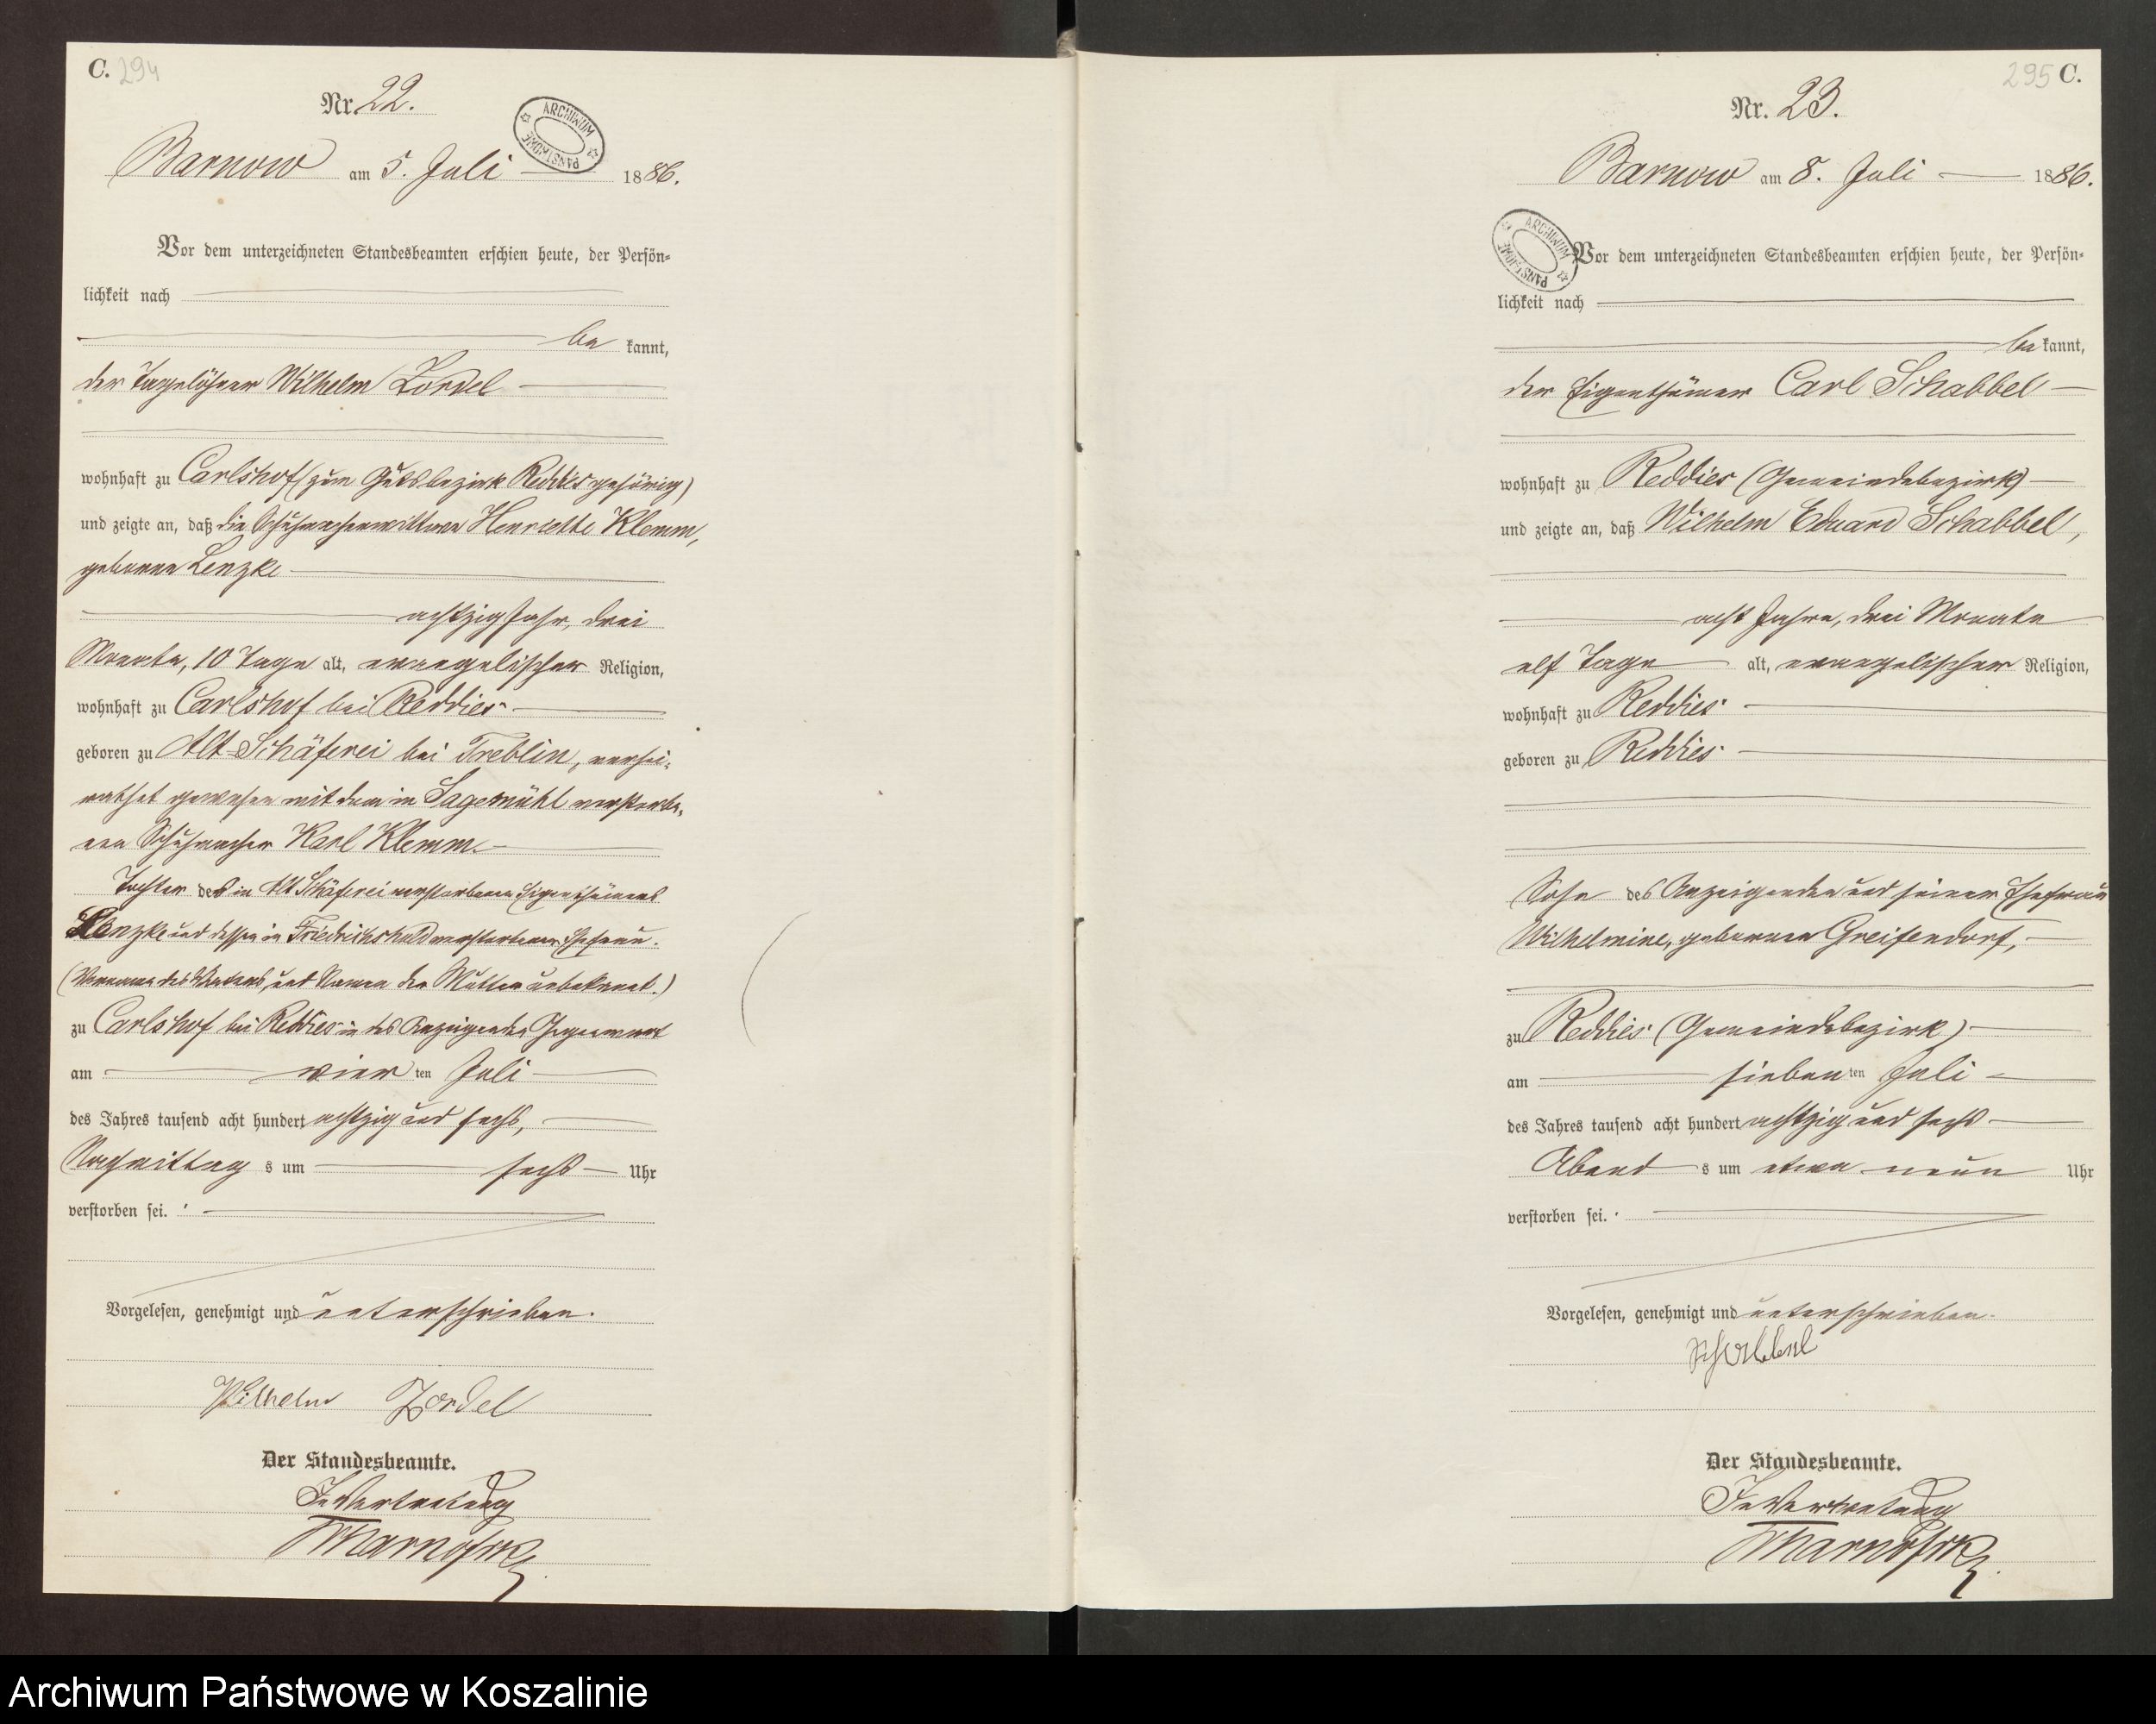 C. 294
Nr. 22.
ARCHIWUM PAŃSTWOWE
Barnow am 5. Juli 1886.
Vor dem unterzeichneten Standesbeamten erschien heute, der Persön-
lichkeit nach
be kannt,
der Tagelöhner Wilhelm Zordel
wohnhaft zu Carlshof (zum Gutsbezirk Reddies gehörig)
und zeigte an, daß die Schuhmacherwittwe Henriette Klemm,
geborene Lenzke
achtzig Jahr, drei
Monate, 10 Tage alt, evangelischer Religion,
wohnhaft zu Carlshof bei Reddies
geboren zu Alt-Schäferei bei Treblin, verhei-
rathet gewesen mit dem in Sagemühl verstorbe-
nen Schuhmacher Karl Klemm.
Tochter des in Alt Schäferei verstorbenen Eigenthümers
Lenzke und dessen in Friedrichshuld verstorbenen Ehefrau.
(Vorname des Vaters, und Namen der Mutter unbekannt.)
zu Carlshof bei Reddies in des Anzeigenden Gegenwart
am vier ten Juli
des Jahres tausend acht hundert achtzig und sechs,
Nachmittag s um sechs Uhr
verstorben sei.
Vorgelesen, genehmigt und unterschrieben.
Wilhelm Zordel
Der Standesbeamte.
In Vertretung
C. 295
Nr. 23.
Barnow am 8. Juli 1886.
ARCHIWUM PAŃSTWOWE
Vor dem unterzeichneten Standesbeamten erschien heute, der Persön-
lichkeit nach
be kannt,
der Eigenthümer Carl Schabbel
wohnhaft zu Reddies (Gemeindebezirk)
und zeigte an, daß Wilhelm Eduard Schabbel,
acht Jahre, drei Monate
elf Tage alt, evangelischer Religion,
wohnhaft zu Reddies
geboren zu Reddies
Sohn des Anzeigenden und seiner Ehefrau
Wilhelmine, geborenen Greifendorf,
zu Reddies (Gemeindebezirk)
am sieben ten Juli
des Jahres tausend acht hundert achtzig und sechs
Abend s um etwa neun Uhr
verstorben sei.
Vorgelesen, genehmigt und unterschrieben.
Schabbel
Der Standesbeamte.
In Vertretung
Archiwum Państwowe w Koszalinie